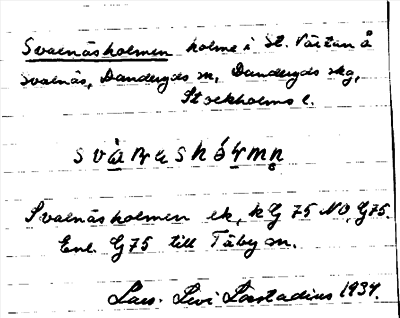 Svalnäsholmen holme i St. Värtan å
Svalnäs, Danderyds sn, Danderyds skg,
Stockholms l.
Svalnäsholmen ek. k G 75 NO, G75.
Enl. G75 till Täby sn.
Lars Levi Læstadius 1934.